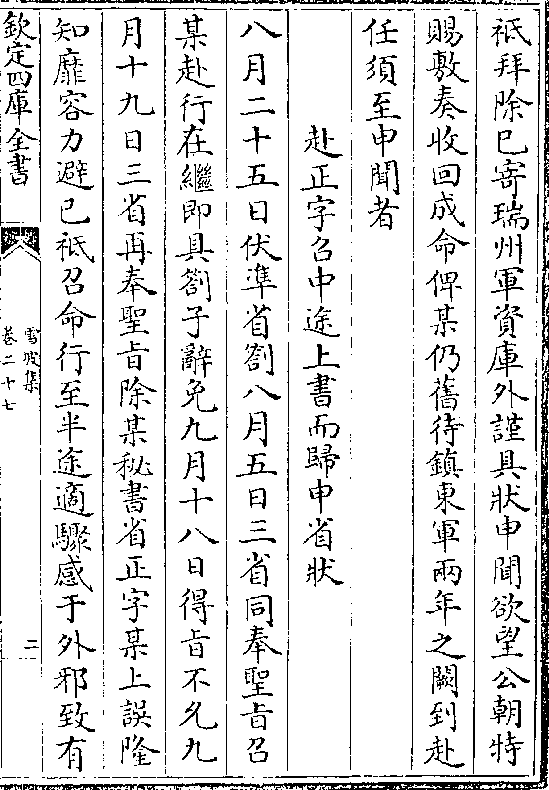 祇拜除已寄瑞州軍資庫外謹具狀申聞欲望公朝特
賜敷奏收回成命俾某仍舊待鎮東軍兩年之闕到赴
任須至申聞者
赴正字召中途上書而歸申省狀
八月二十五日伏準省劄八月五日三省同奉聖旨召
某赴行在繼即具劄子辭免九月十八日得旨不允九
月十九日三省再奉聖旨除某秘書省正字某上誤隆
知靡容力避已祗召命行至半途適驟感于外邪致有
欽定四庫全書
雪坡集
卷二十七
二